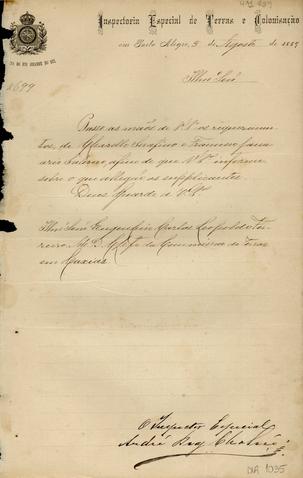 Inspectoria Especial de Terras e Colonisação
em Porto Alegre, 5 de Agosto de 1889
DO RIO GRANDE DO SUL
1699
Illmo Snr
Passo ás mãos de V.Sª os requerimen
tos, de Guarello Serafino e Francisco
afim de que V.Sª informe
sobre o que allegão os supplicantes.
Deus Guarde a V.Sª
Illmo Snr Engenheiro Carlos Leopoldo
M. D. Chefe da Commissão de Terras
em Caxias
O Inspector Especial
André
DIA 1035